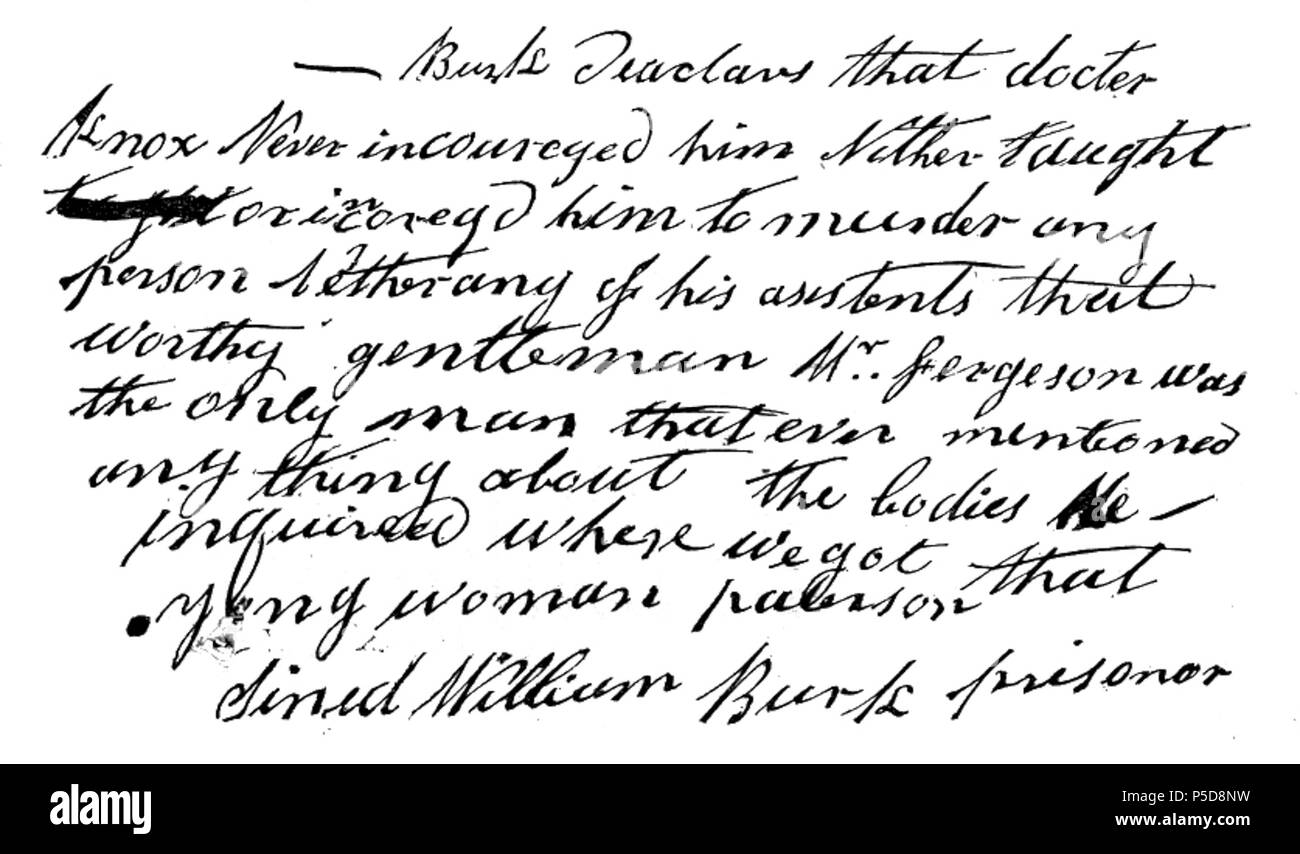 — Burk deaclars that docter
Knox Never incoureged him Nither taught
or incoregd him to murder any
person Nether any of his asistents that
worthy gentleman Mr. Fergeson was
the only man that ever mentioned
any thing about the bodies He —
inquired where we got that
yong woman paterson
Sined William Burk prisonor
alamy
Image ID: P5D8NW
www.alamy.com